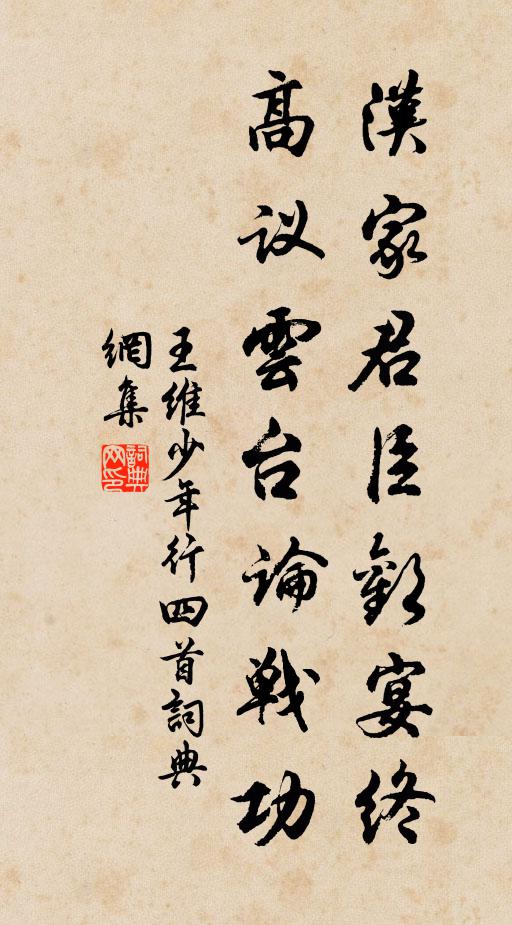 漢家君臣歡宴終
高议雲台論戦功
王維少年行四首詞典
網集
詞典网印